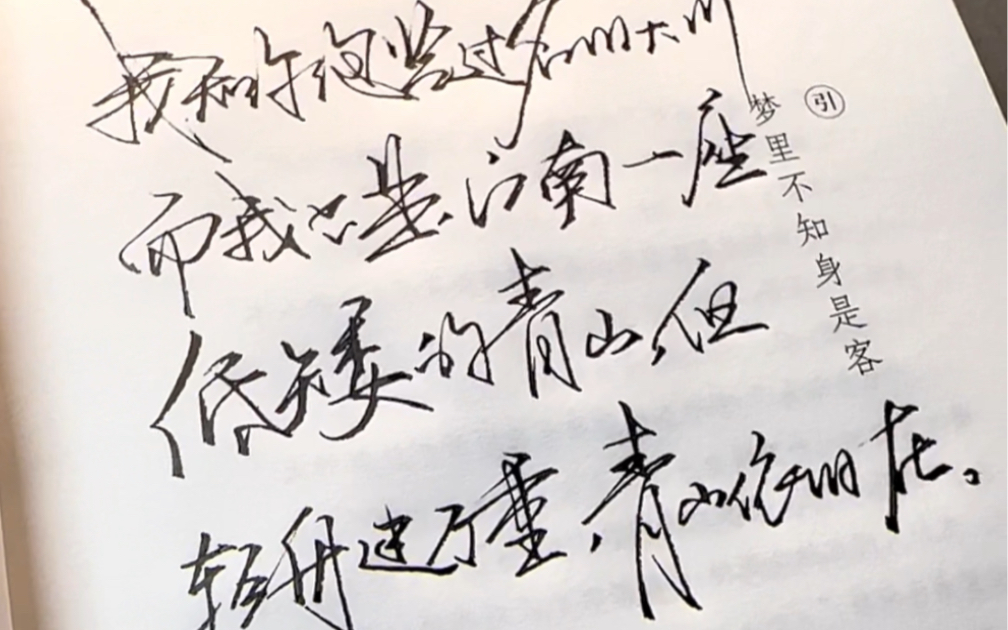 我知你词尝过名山大川
而我只是江南一座
低矮的青山,但
轻舟过万重,青山依旧在。
引
梦里不知身是客